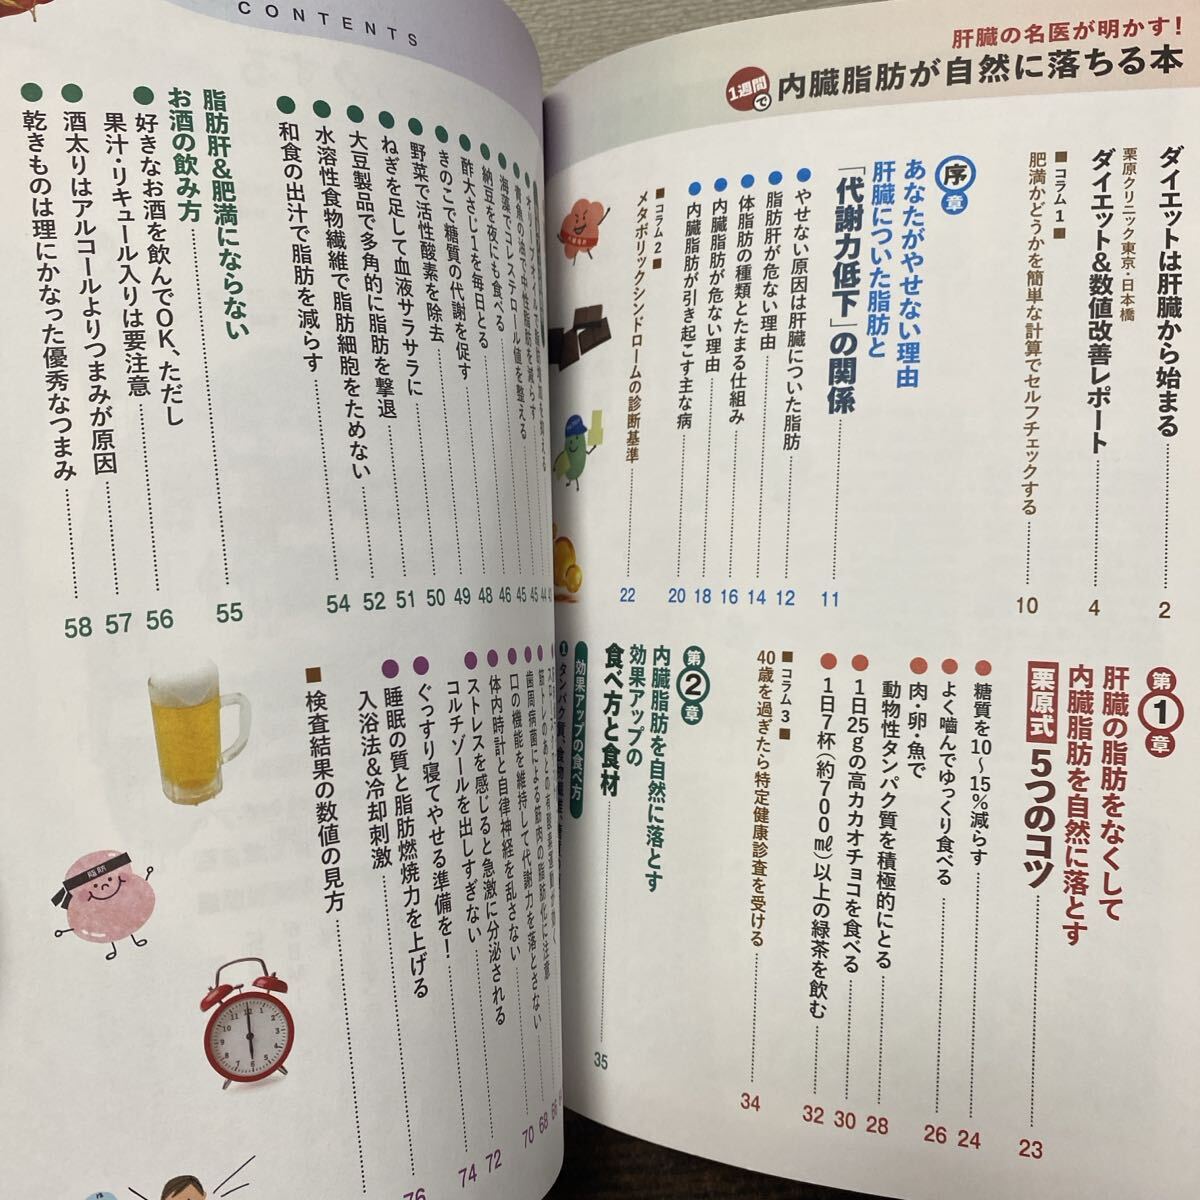 肝臓の名医が明かす!
1週間で 内臓脂肪が自然に落ちる本
ダイエットは肝臓から始まる 2
栗原クリニック東京・日本橋
ダイエット&数値改善レポート 4
■コラム1■
肥満かどうかを簡単な計算でセルフチェックする 10
序章
あなたがやせない理由
肝臓についた脂肪と
「代謝力低下」の関係 11
●やせない原因は肝臓についた脂肪 12
●脂肪肝が危ない理由 14
●体脂肪の種類とたまる仕組み 16
●内臓脂肪が危ない理由 18
●内臓脂肪が引き起こす主な病 20
■コラム2■
メタボリックシンドロームの診断基準 22
第1章
肝臓の脂肪をなくして
内臓脂肪を自然に落とす
栗原式 5つのコツ 23
●糖質を10〜15%減らす 24
●よく嚙んでゆっくり食べる 26
●肉・卵・魚で
動物性タンパク質を積極的にとる 28
●1日25gの高カカオチョコを食べる 30
●1日7杯(約700㎖)以上の緑茶を飲む 32
■コラム3■
40歳を過ぎたら特定健康診査を受ける 34
第2章
内臓脂肪を自然に落とす
効果アップの
食べ方と食材 35
効果アップの食べ方
1 タンパク質、食物繊維、
CONTENTS
●青魚の油で中性脂肪を減らす 45
●海藻でコレステロール値を整える 46
●納豆を夜にも食べる 48
●酢大さじ1を毎日とる 49
●きのこで糖質の代謝を促す 50
●野菜で活性酸素を除去 51
●ねぎを足して血液サラサラに 52
●大豆製品で多角的に脂肪を撃退
●水溶性食物繊維で脂肪細胞をためない
●和食の出汁で脂肪を減らす 54
脂肪肝&肥満にならない
お酒の飲み方 55
●好きなお酒を飲んでOK、ただし
果汁・リキュール入りは要注意 56
●酒太りはアルコールよりつまみが原因 57
●乾きものは理にかなった優秀なつまみ 58
筋トレのあとの有酸素運動が効く 66
●歯周病菌による筋肉の脂肪化に注意 68
●口の機能を維持して代謝力を落とさない 70
●体内時計と自律神経を乱さない 72
●ストレスを感じると急激に分泌される
コルチゾールを出しすぎない 74
●ぐっすり寝てやせる準備を! 76
●睡眠の質と脂肪燃焼力を上げる
入浴法&冷却刺激
■検査結果の数値の見方
脂肪